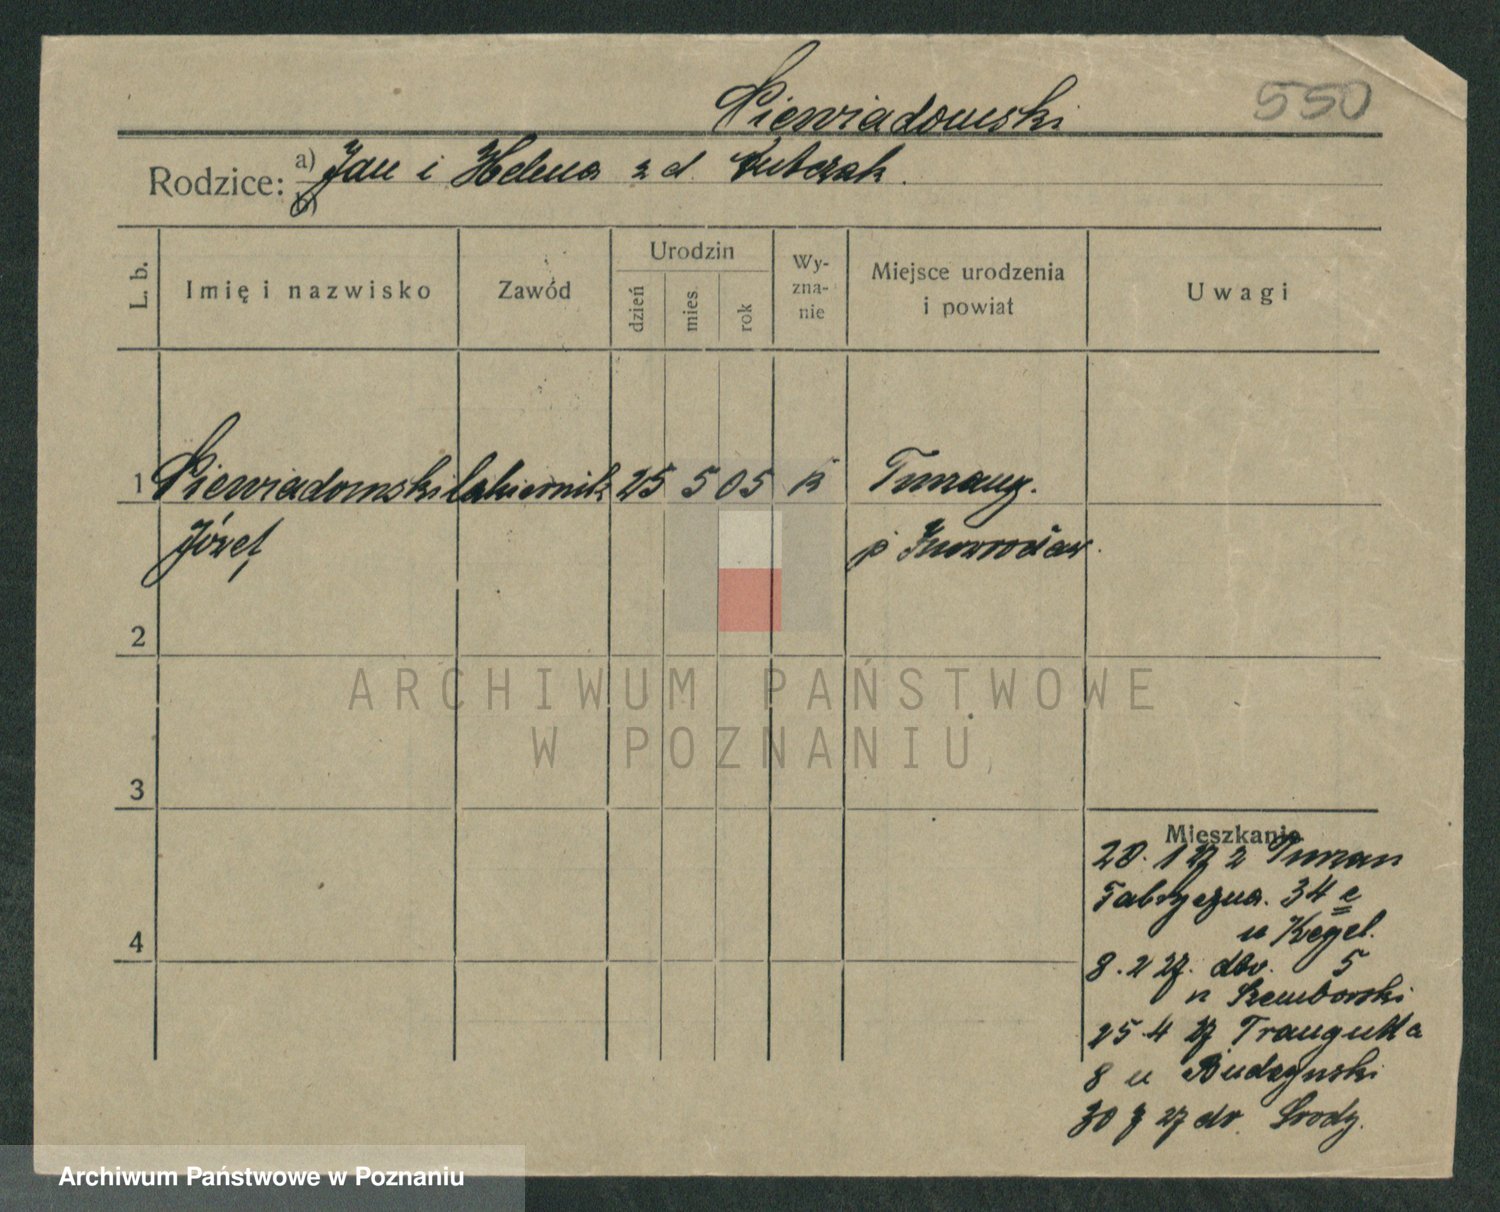 Niewiadomski
550
Rodzice: a) Jan i Helena z d. Kubczak.
b)
L. b.
Imię i nazwisko
Zawód
Urodzin
dzień
mies.
rok
Wy-
zna-
nie
Miejsce urodzenia
i powiat
Uwagi
1 Niewiadomski lakiernik 25 5 05 k
Józef
p Inowrocław.
2
3
4
Mieszkanie
20. 1 27 z
Fabryczna. 34 c
u Kegel.
8. 2 27. 5
u Szemborski
25 4 27 Traugutta
8 u Budzynski
30 7 27 do Środy.
ARCHIWUM PAŃSTWOWE
W POZNANIU
Archiwum Państwowe w Poznaniu